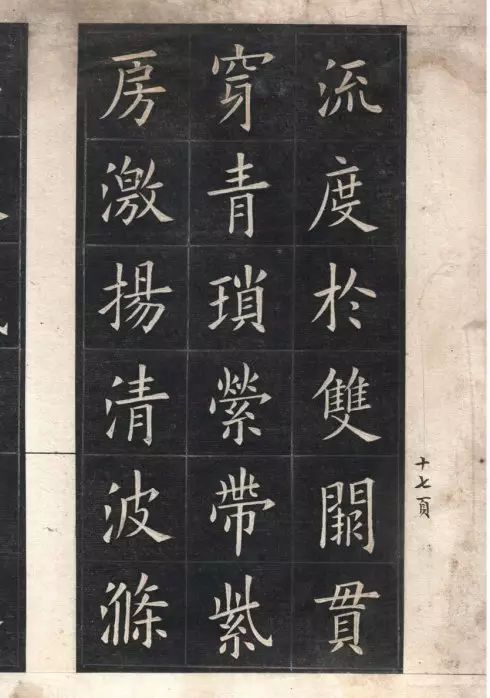 十七頁
流度於雙闕貫
穿青瑣縈帶紫
房激揚清波滌